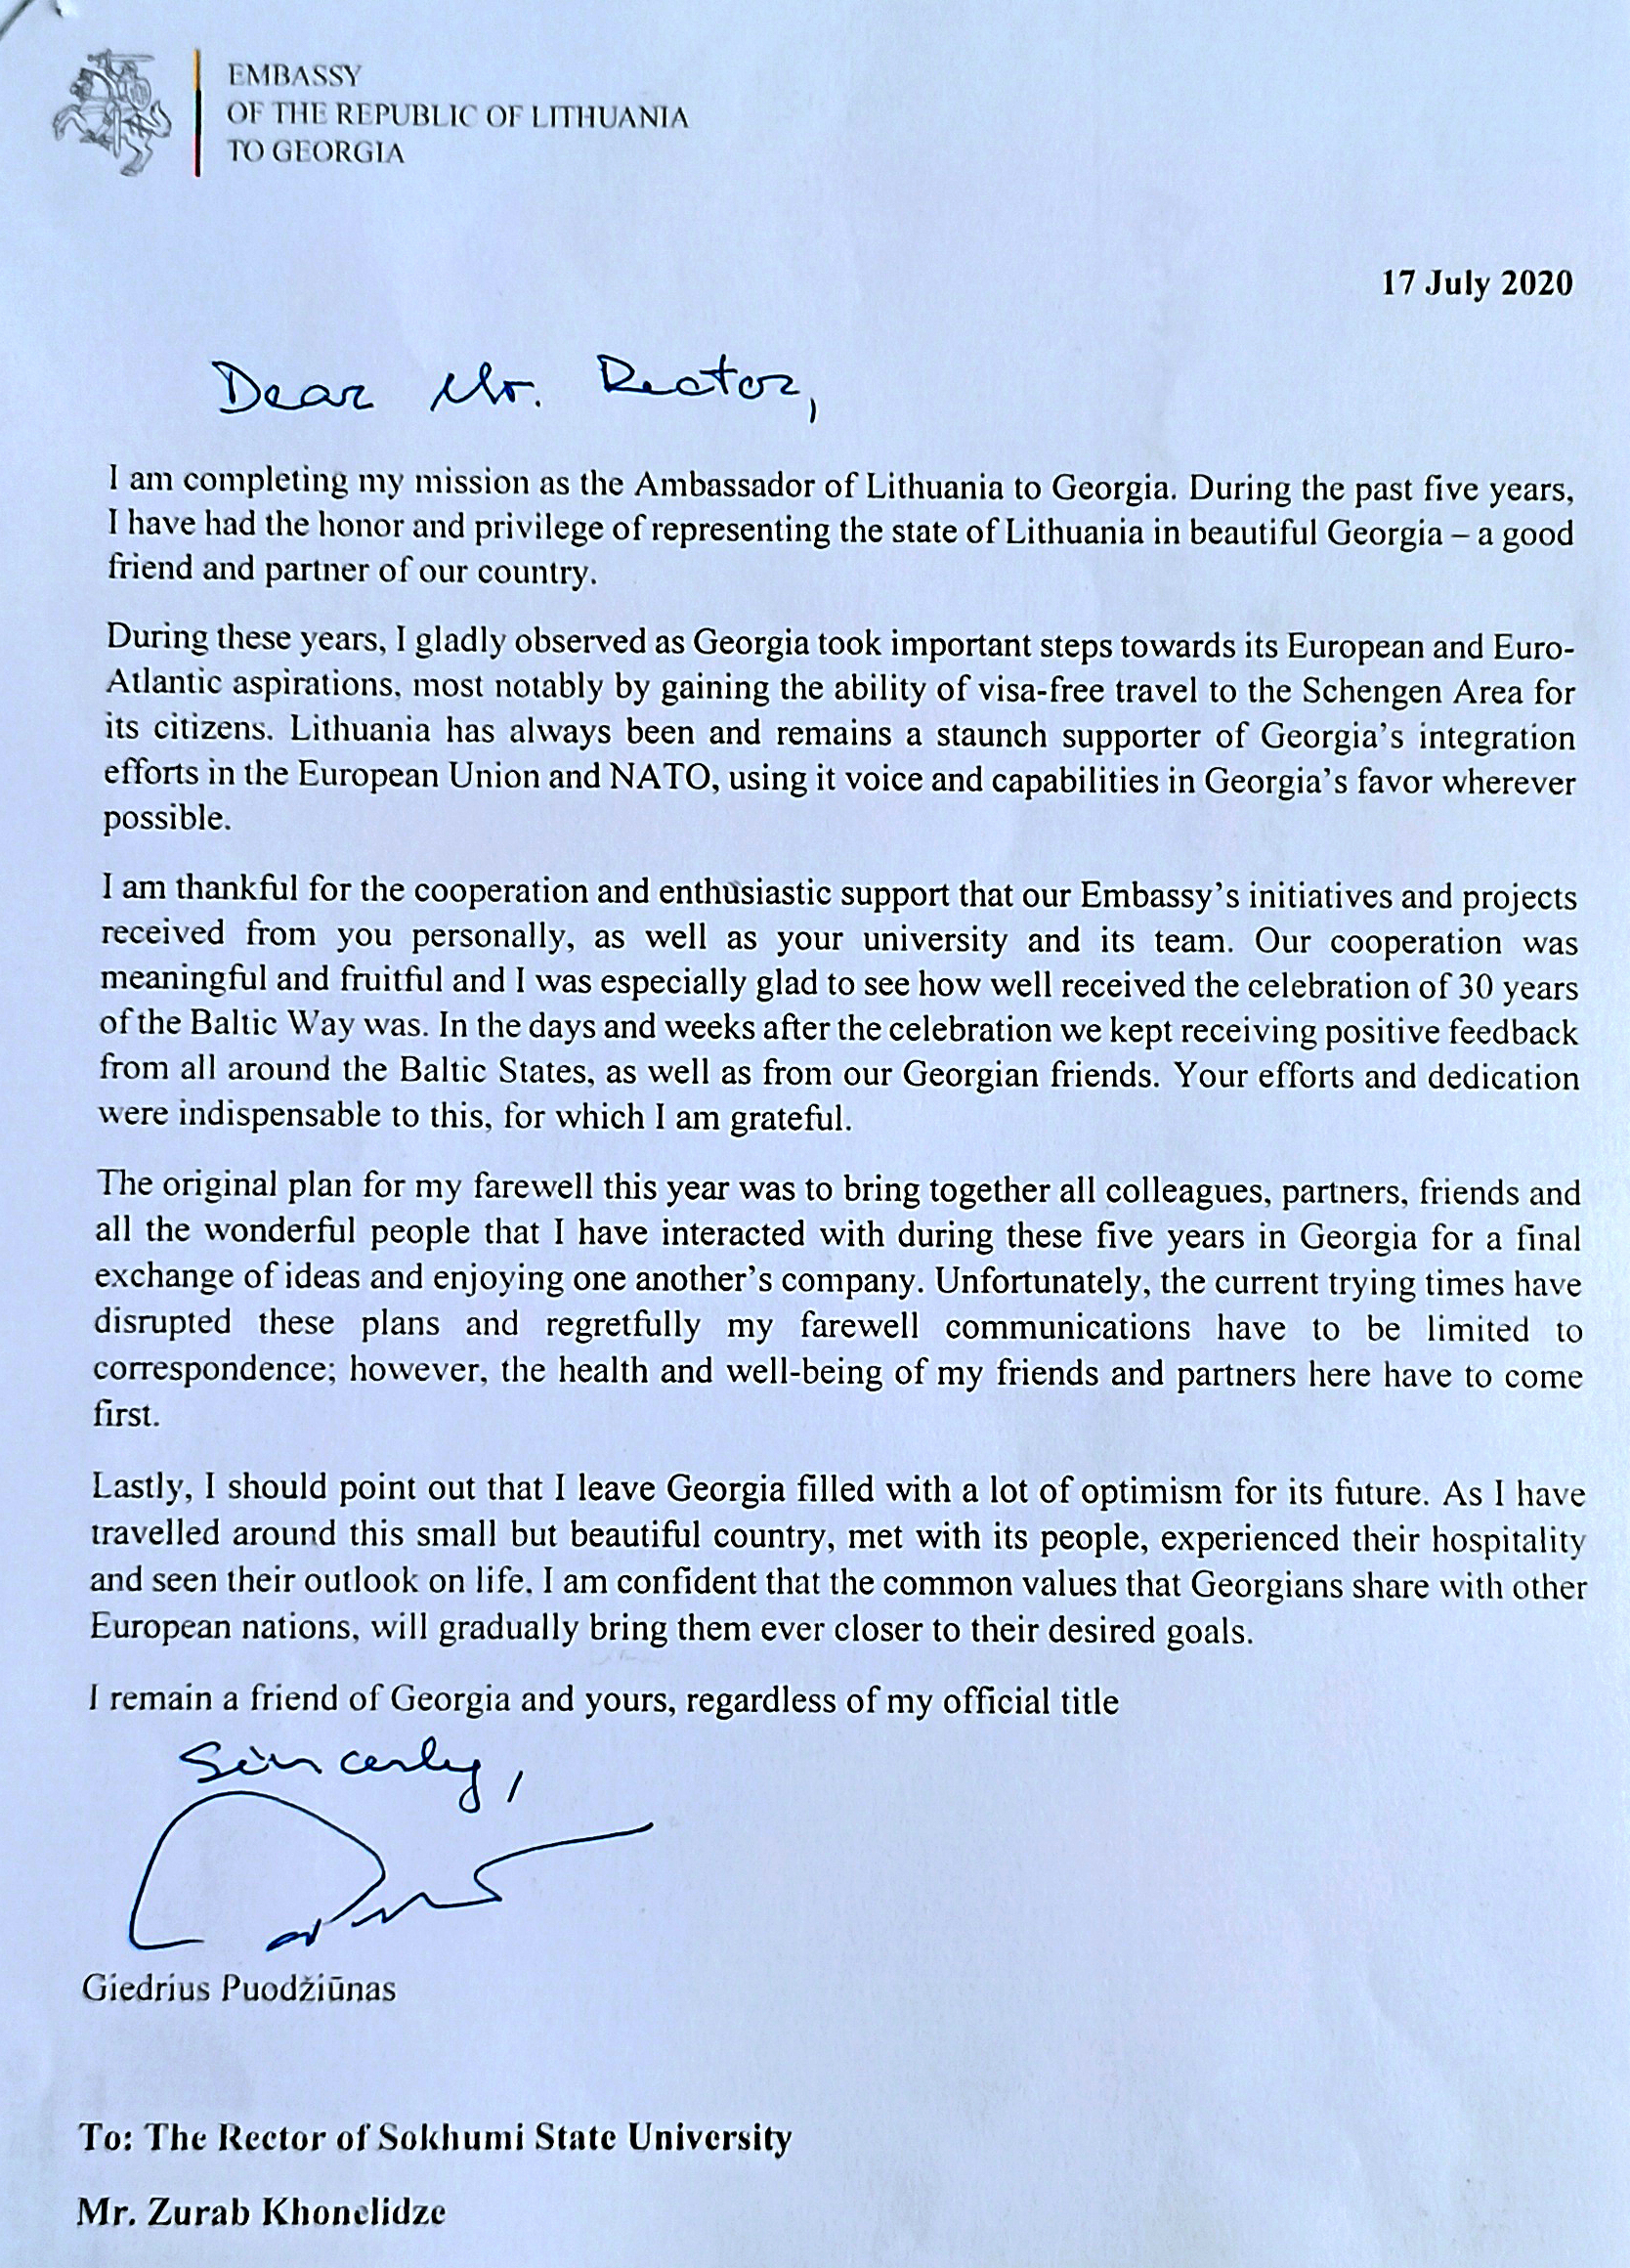 EMBASSY
OF THE REPUBLIC OF LITHUANIA
TO GEORGIA
17 July 2020
Dear Mr. Rector,
I am completing my mission as the Ambassador of Lithuania to Georgia. During the past five years,
I have had the honor and privilege of representing the state of Lithuania in beautiful Georgia – a good
friend and partner of our country.
During these years, I gladly observed as Georgia took important steps towards its European and Euro-
Atlantic aspirations, most notably by gaining the ability of visa-free travel to the Schengen Area for
its citizens. Lithuania has always been and remains a staunch supporter of Georgia’s integration
efforts in the European Union and NATO, using it voice and capabilities in Georgia’s favor wherever
possible.
I am thankful for the cooperation and enthusiastic support that our Embassy’s initiatives and projects
received from you personally, as well as your university and its team. Our cooperation was
meaningful and fruitful and I was especially glad to see how well received the celebration of 30 years
of the Baltic Way was. In the days and weeks after the celebration we kept receiving positive feedback
from all around the Baltic States, as well as from our Georgian friends. Your efforts and dedication
were indispensable to this, for which I am grateful.
The original plan for my farewell this year was to bring together all colleagues, partners, friends and
all the wonderful people that I have interacted with during these five years in Georgia for a final
exchange of ideas and enjoying one another’s company. Unfortunately, the current trying times have
disrupted these plans and regretfully my farewell communications have to be limited to
correspondence; however, the health and well-being of my friends and partners here have to come
first.
Lastly, I should point out that I leave Georgia filled with a lot of optimism for its future. As I have
travelled around this small but beautiful country, met with its people, experienced their hospitality
and seen their outlook on life, I am confident that the common values that Georgians share with other
European nations, will gradually bring them ever closer to their desired goals.
I remain a friend of Georgia and yours, regardless of my official title
Sincerly,
Giedrius Puodžiūnas
To: The Rector of Sokhumi State University
Mr. Zurab Khonelidze